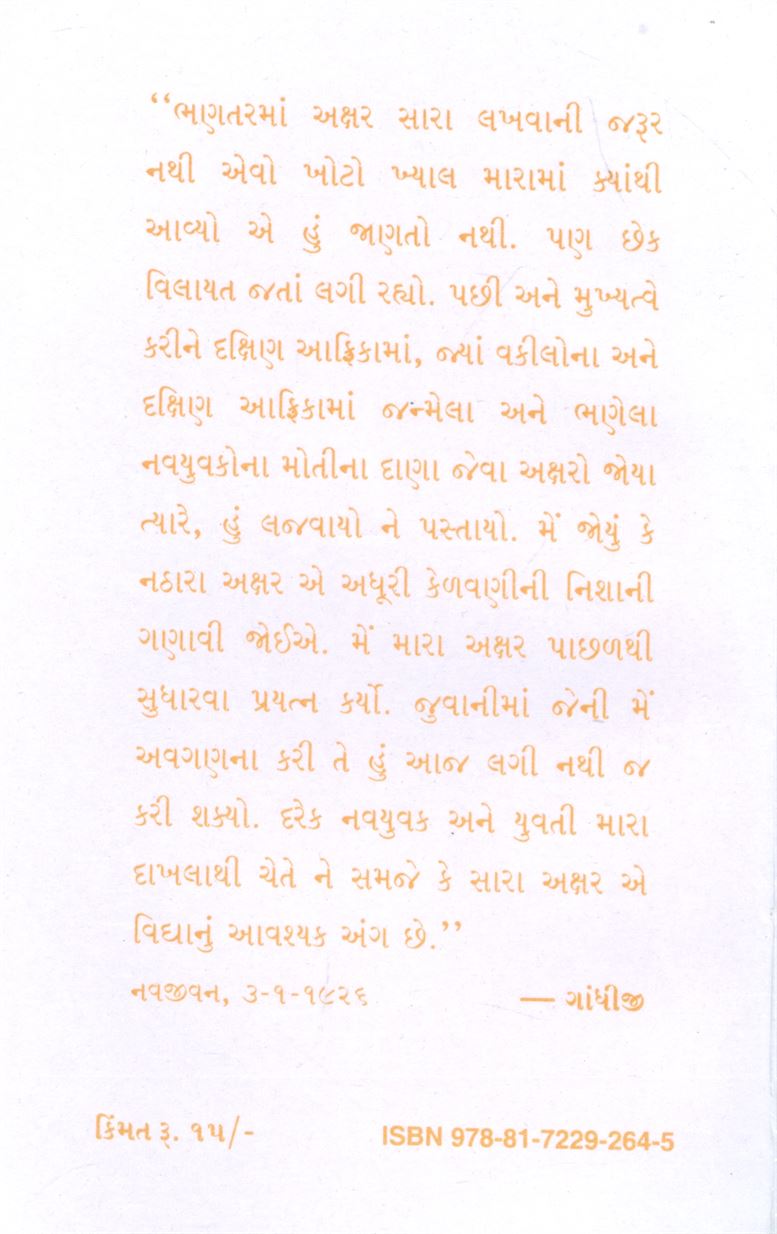 “ભણતરમાં અક્ષર સારા લખવાની જરૂર
નથી એવો ખોટો ખ્યાલ મારામાં ક્યાંથી
આવ્યો એ હું જાણતો નથી. પણ છેક
વિલાયત જતાં લગી રહ્યો. પછી અને મુખ્યત્વે
કરીને દક્ષિણ આફ્રિકામાં, જ્યાં વકીલોના અને
દક્ષિણ આફ્રિકામાં જન્મેલા અને ભણેલા
નવયુવકોના મોતીના દાણા જેવા અક્ષરો જોયા
ત્યારે, હું લજવાયો ને પસ્તાયો. મેં જોયું કે
નઠારા અક્ષર એ અધૂરી કેળવણીની નિશાની
ગણાવી જોઈએ. મેં મારા અક્ષર પાછળથી
સુધારવા પ્રયત્ન કર્યો. જુવાનીમાં જેની મેં
અવગણના કરી તે હું આજ લગી નથી જ
કરી શક્યો. દરેક નવયુવક અને યુવતી મારા
દાખલાથી ચેતે ને સમજે કે સારા અક્ષર એ
વિદ્યાનું આવશ્યક અંગ છે.”
નવજીવન, ૩-૧-૧૯૨૬ — ગાંધીજી
કિંમત રૂ. ૧૫/- ISBN 978-81-7229-264-5